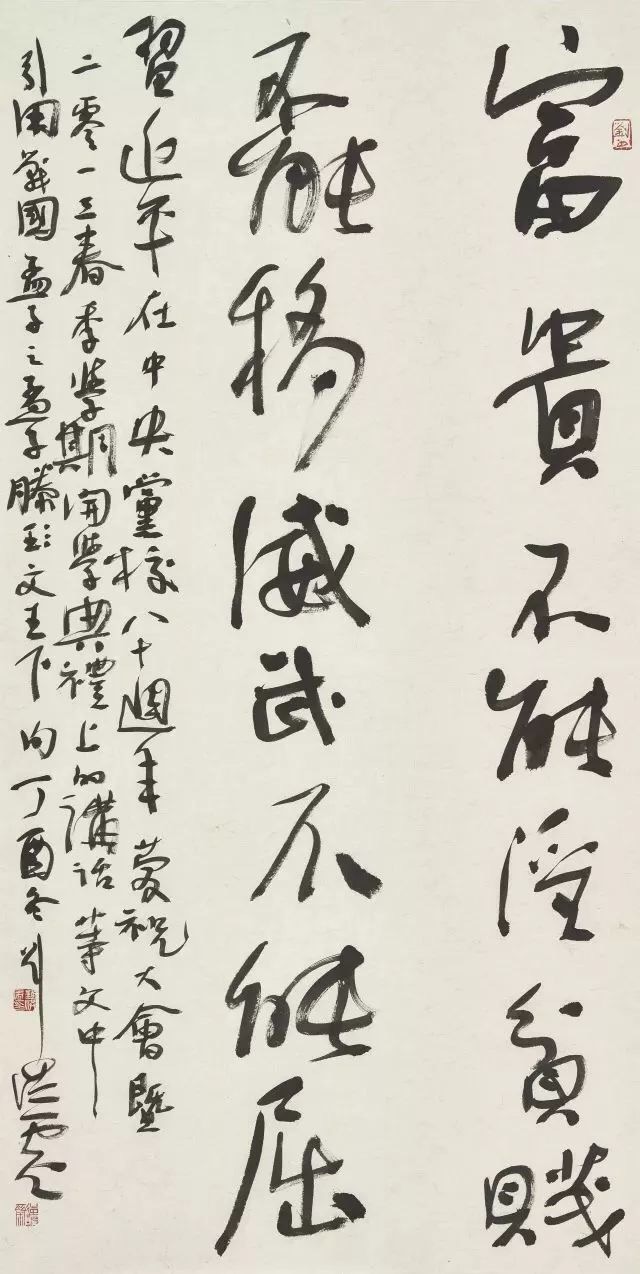 富貴不能淫貧賤
不能移威武不能屈
習近平在中央黨校八十週年慶祝大會暨
二零一三春季學期開學典禮上的講話等文中
引用戰國孟子之孟子滕文王下句丁酉冬劉洪彪